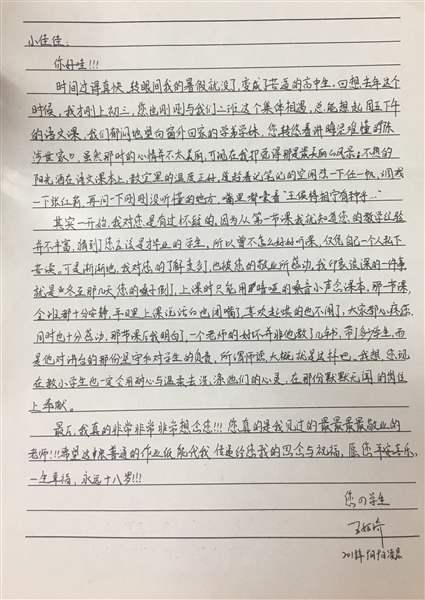 小佳佳：
你好哇!!!
时间过得真快，转眼间我的暑假就没了，变成了苦逼的高中生，回想去年这个
时候，我才刚上初三，您也刚刚与我们二班这个集体相遇，总能想起周五下午
的语文课，我们郁闷地望向窗外回家的学弟学妹，您转悠着讲晦涩难懂的《陈
涉世家》，虽然那时的心情并不太美丽，可现在我却觉得那是最美丽的风景：不热的
阳光洒在语文课本上，教室里的温度正好，我趁着记笔记的空闲
一下张仁莉，再问一下刚刚没听懂的地方，嘴里嘟囔着“王侯将相宁有种乎…”
其实一开始，我对您是有过怀疑的，因为从第一节课我就知道您的教学经验
并不丰富，猜到了您应该是才毕业的学生，所以曾不怎么好好听课，仅凭自己一个人私下
苦读。可是渐渐地，我对您的了解变多了，也被您的敬业所感动，我印象最深的一件事
就是冬至那几天您的嗓子倒了，上课时只能用嘶哑的嗓音小声念课本，那一节课，
全班都十分安静，平日里上课说话的也闭嘴了，喜欢起哄的也不闹了，大家都心疼您，
同时也十分感动，那节课后我明白了，一个老师的好坏并非他教了几年书，带了多少学生，而
是他对讲台的那份坚守和对学生的负责，所谓师德，大概就是这样吧。我想，您现
在教小学生也一定会用耐心与温柔去洗涤他们的心灵，在那份默默无闻的岗位
上奉献。
最后，我真的非常非常非常想念您!!!您真的是我见过的最最最最敬业的
老师!!!希望这张普通的作业纸能代我传递给您我的思念与祝福，愿您平安喜乐，
一生幸福，永远十八岁!!!
您の学生